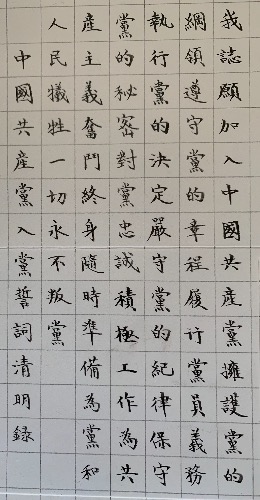 我誌願加入中國共產黨擁護黨的
綱領遵守黨的章程履行黨員義務
執行黨的決定嚴守黨的紀律保守
黨的秘密對黨忠誠積極工作為共
產主義奮鬥終身隨時準備為黨和
人民犧牲一切永不叛黨
中國共產黨入黨誓詞清明録